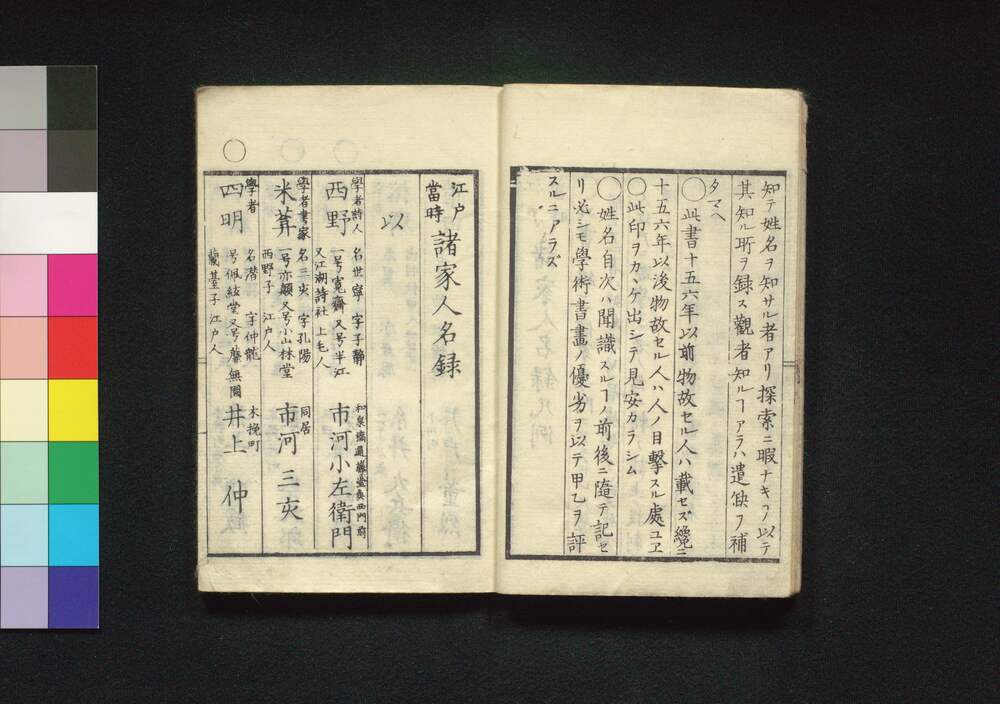 知テ姓名ヲ知サル者アリ探索ニ暇ナキヿノ以テ
其知ル所ヲ録ス觀者知ルヿアラハ遺缺ヲ補
タマヘ
〇此書十五六年以前物故セル人ハ載セズ纔ニ
十五六年以後物故セル人ハ人ノ目撃スル處ユヱ
〇此印ヲカヽケ出シテ見安カラシム
〇姓名自次ハ聞識スルヿノ前後ニ隨テ記セ
リ必シモ學術書畫ノ優劣ヲ以テ甲乙ヲ評
スルニアラズ
江戸
當時
諸家人名録
以
〇
學者詩人
西野
名世寧 字子静
一号寛齋 又号半江
又江湖詩社 上毛人
和泉橋通藤堂矦西門前
市河小左衛門
〇
學者書家
米葊
名三亥 字孔陽
一号亦顛又号小山林堂
西野子 江戸人
同居
市河三亥
〇
學者
四明
名潜 字仲龍
号佩弦堂又号
蘭臺子 江戸人
木挽町
井上仲